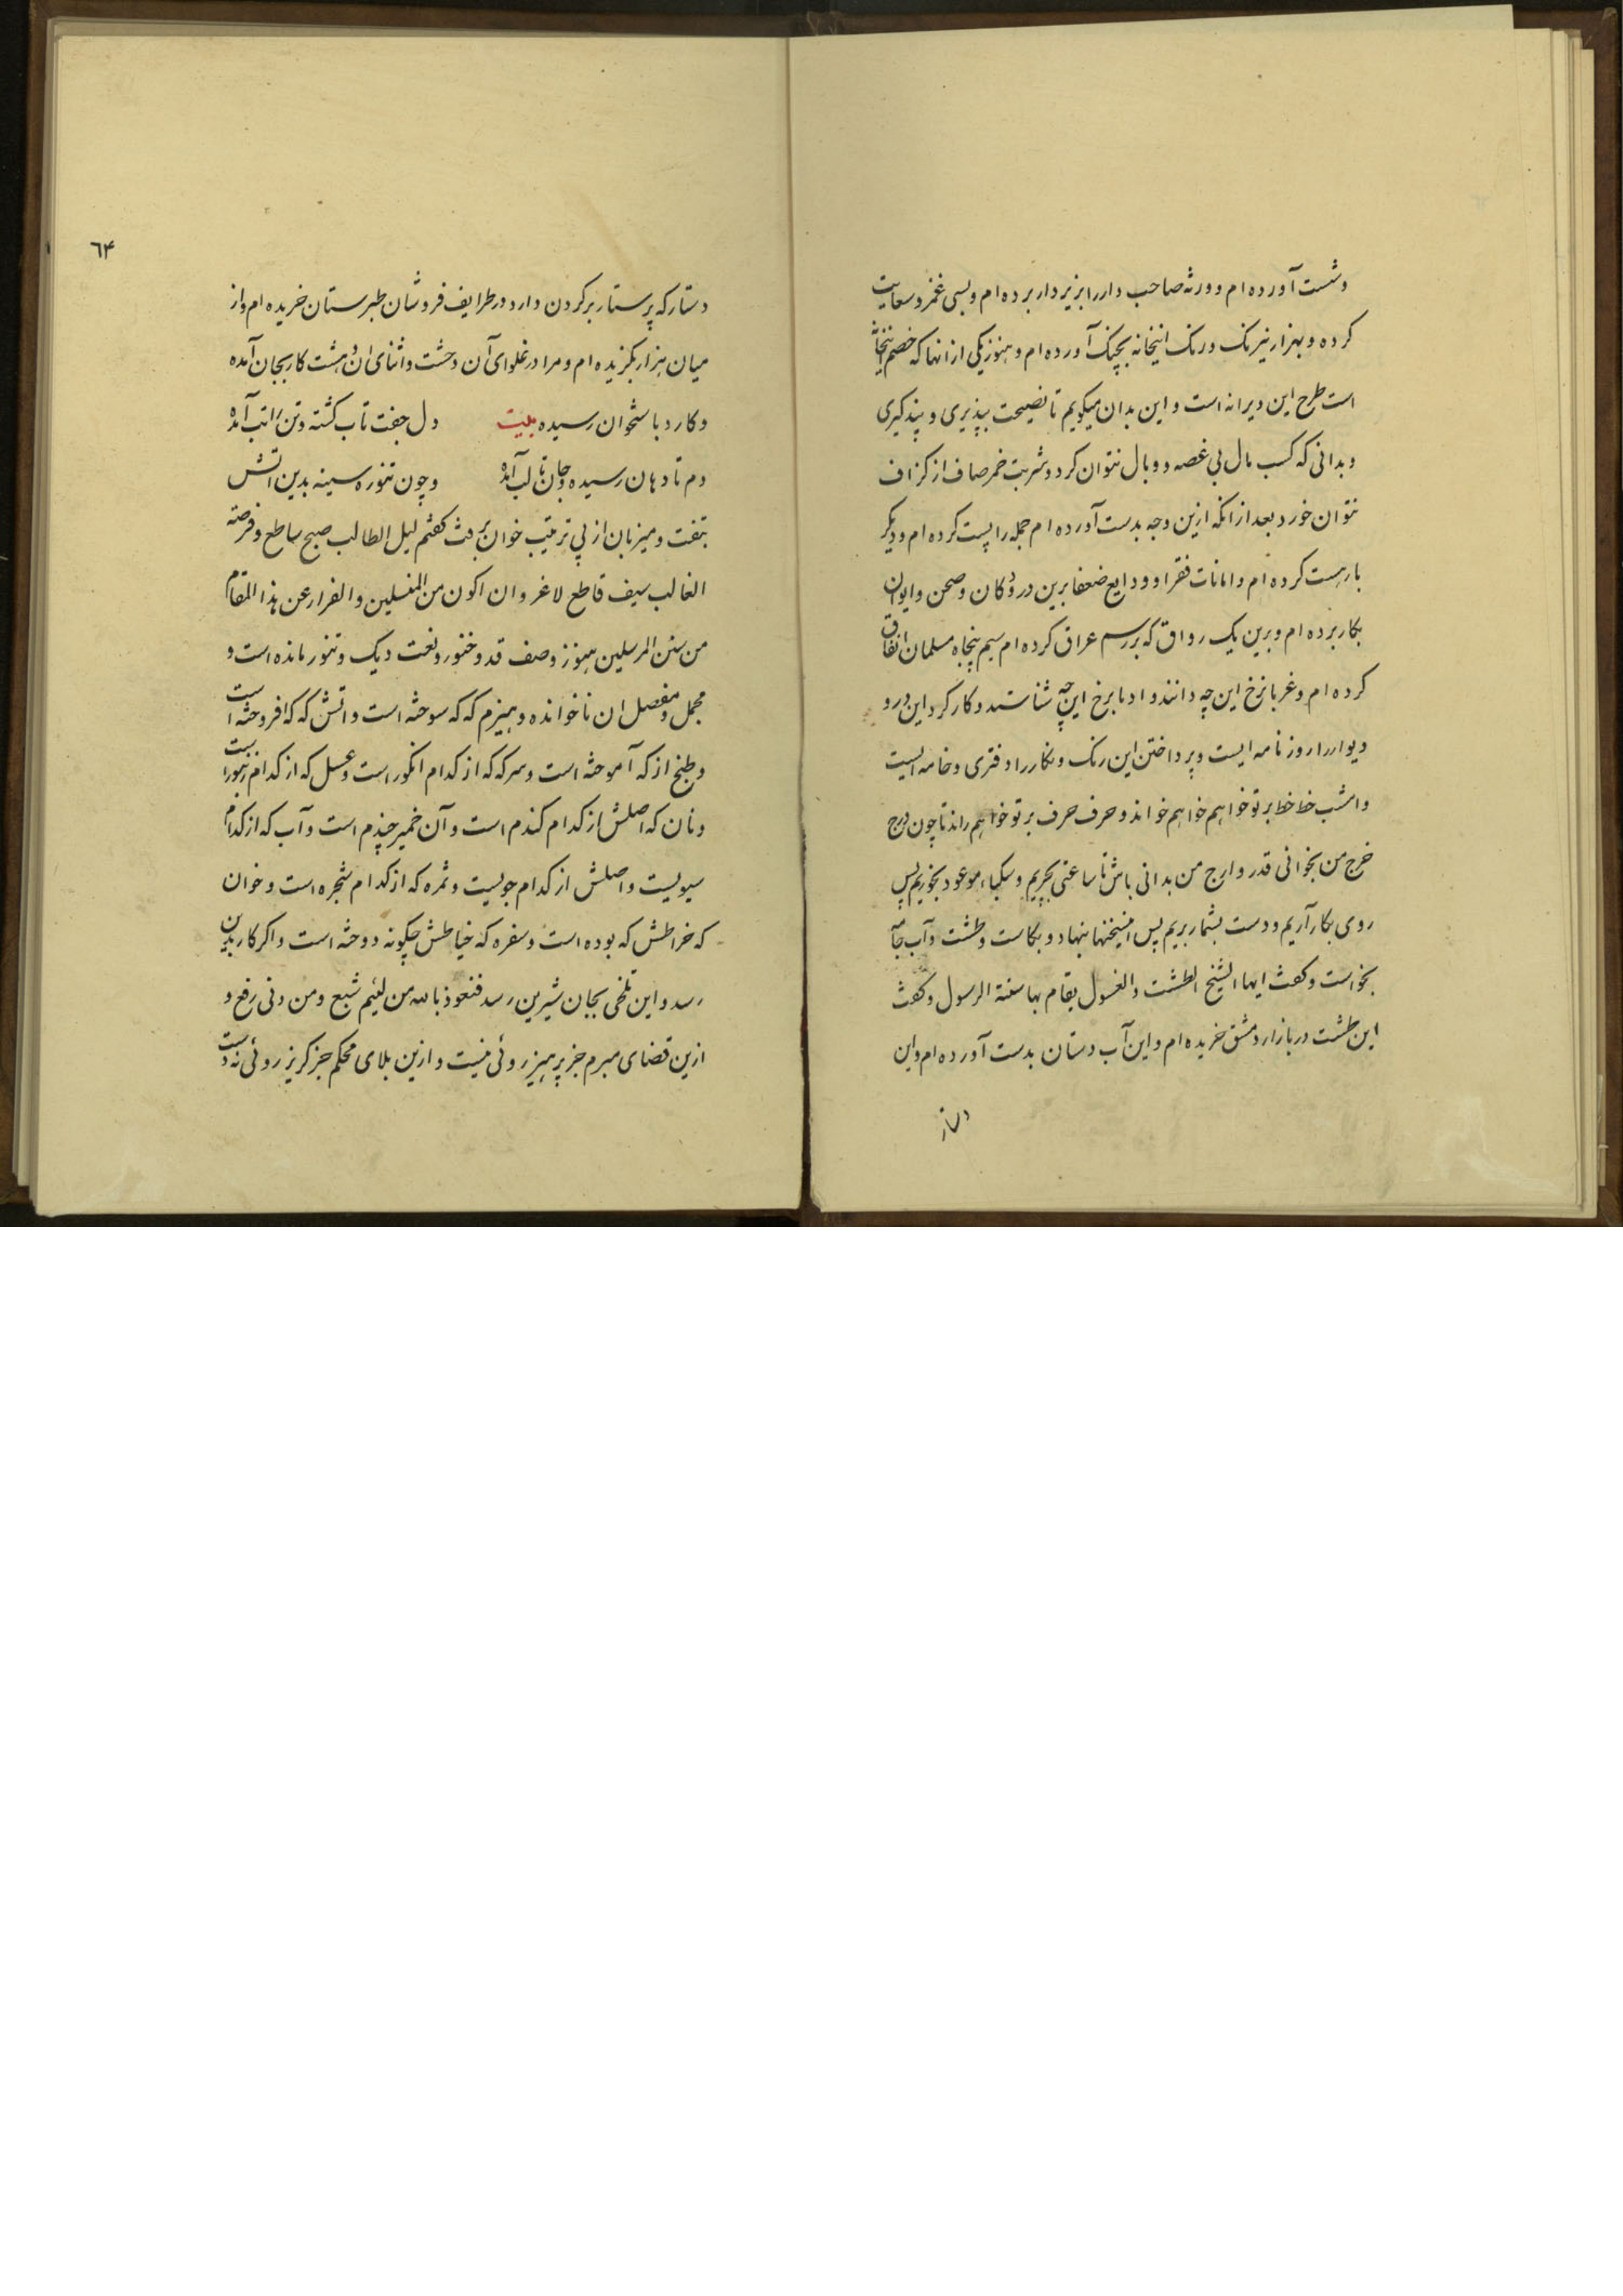 وشست آورده ام وورثه صاحب دار را بزیر دار برده ام وبسی غمز وسعایت
کرده وبهزار نیرنک ورنک اینخانه بچنک آورده ام وهنوز یکی ازانها که خصم اینخانه
است طرح این ویرانه است واین بدان میکویم تا نصیحت بپذیری وپند کیری
وبدانی که کسب مال بی غصه ووبال نتوان کرد وشربت خمر صاف از کزاف
نتوان خورد بعد ازانکه ازین وجه بدست آورده ام جمله را پست کرده ام ودیکر
بار هست کرده ام وامانات فقرا وودایع ضعفا برین در ودکان وصحن وایوان
بکار برده ام وبرین یک رواق که بر رسم عراق کرده ام سیم پنجاه مسلمان انفاق
کرده ام وغربا نرخ این چه دانند وادبا برخ این چه شناسند وکارکرد این در و
دیوار را روزنامه ایست وپرداختن این رنک ونکار را دفتری وخامه ایست
وامشب خط خط برتو خواهم خواهم خواند وحرف حرف برتو خواهم راند تا چون درج
خرج من بخوانی قدر وارج من بدانی باش تا ساعتی بچریم وسکباء موعود بخوریم پس
روی بکار آریم ودست بشمار بریم پس اینسخنها بنهاد وبکاست وطشت وآب
بخواست وکفت ایها الشیخ الطشت والغسول یقام بها سنة الرسول وکفت
این طشت در بازار دمشق خریده ام واین آب دستان بدست آورده ام واین
دستار
٦٤
دستار که پرستار بر کردن دارد در طرایف فروشان طبرستان خریده ام واز
میان هزار بکزیده ام ومرا در غلوای آن وحشت واثنای ان دهشت کار بجان آمده
وکارد باستخوان رسیده بیت دل جفت تاب کشته وتن را تب آمده
دم تا دهان رسیده وجان تا لب آمده وچون تنوره سینه بدین اتش
بتفت ومیزبان از پی ترتیب خوان برفت کفتم لیل الطالب صبح ساطع وفرصة
الغالب سیف قاطع لاغرو ان اکون من المنسلین والفرار عن هذا المقام
من سنن المرسلین هنوز وصف قد وخنور ونعت دیک وتنور مانده است و
مجمل ومفصل ان ناخوانده وهیزم که که سوخته است واتش که که افروخته است
وطبخ از که آموخته است وسرکه که از کدام انکور است وعسل که از کدام زنبور است
ونان که اصلش از کدام کندم است وآن خمیر چندم است وآب که از کدام
سبویست واصلش از کدام جویست وثمره که از کدام شجره است وخوان
که خراطش که بوده است وسفره که خیاطش چکونه دوخته است واکر کار بدین
رسد واین تلخی بجان شیرین رسد فنعوذ بالله من لئیم شبع ومن دنی رفع و
ازین قضای مبرم جز پرهیز روئی نیست وازین بلای محکم جز کریز روئی نه